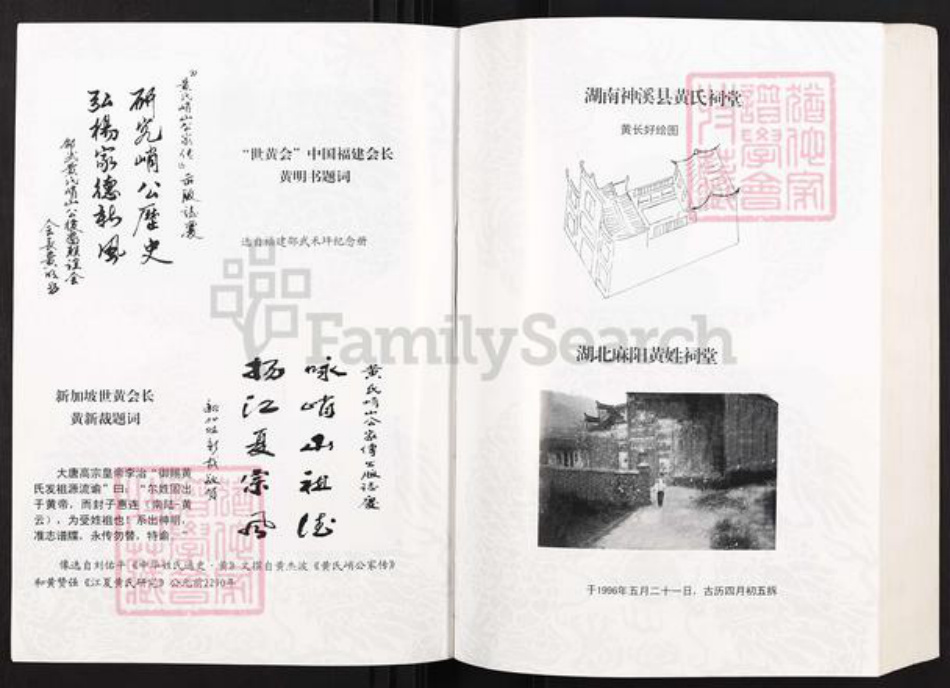 《黄氏峭山公家传》出版誌慶
研究峭公歷史
弘楊家德新風
邵武黄氏峭山公後裔联谊会
会長黄明書
“世黄会”中国福建会长
黄明书题词
选自福建邵武禾坪纪念册
新加坡世黄会长
黄新裁题词
黄氏峭山公家傳出版誌慶
咏峭山祖德
扬江夏宗风
新加坡新裁敬賀
大唐高宗皇帝李治“御赐黄
氏发祖源流谕”曰，“尔姓固出
于黄帝，而封子惠连（南陆-黄
云），为受姓祖也！系出神明，
准志谱牒，永传勿替，特谕。”
像选自刘佑平《中华姓氏通史·黄》文撰自黄杰波《黄氏峭公家传》
和黄赞强《江夏黄氏研究》公元前2290年
湖南神溪县黄氏祠堂
黄长好绘图
湖北麻阳黄姓祠堂
于1996年五月二十一日，古历四月初五拆
FamilySearch
猶他家
譜學會
持藏